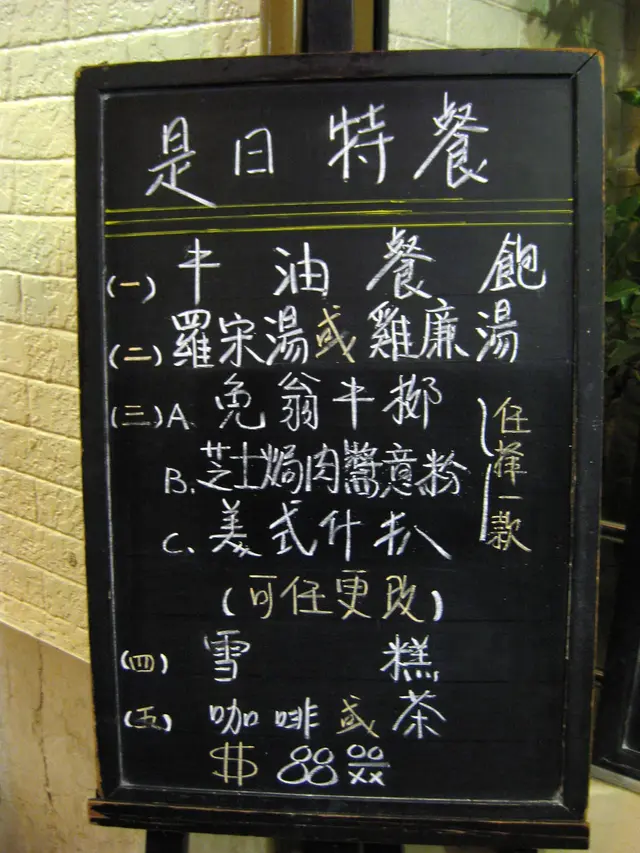 是日特餐
(一) 牛油餐飽
(二) 羅宋湯或雞廉湯
(三) A. 免翁牛擲
B. 芝士焗肉醬意粉
C. 美式什扒
任擇一款
(可任更改)
(四) 雪糕
(五) 咖啡或茶
$88 00/xx